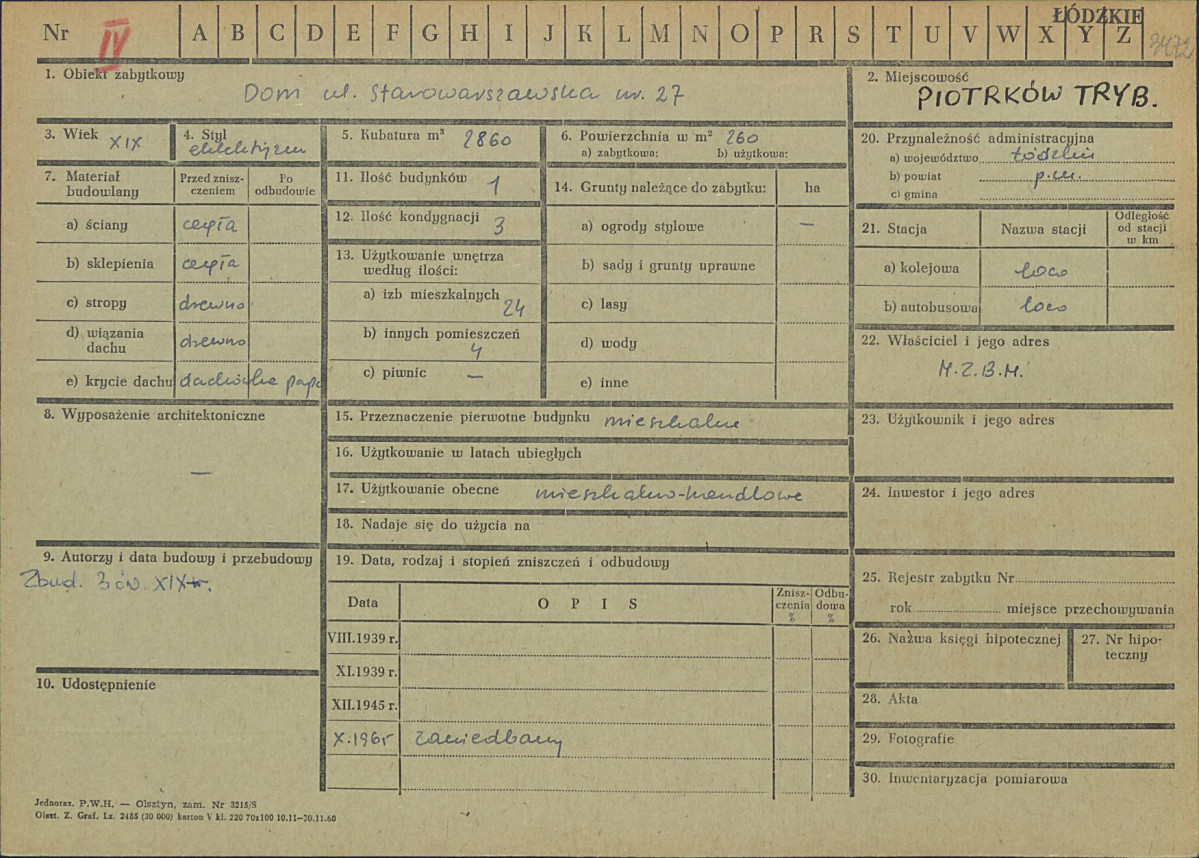 Nr IV A B C D E F G H I J K L M N O P R S T U V W X Y Z ŁÓDZKIE
3472
1. Obiekt zabytkowy
Dom ul. Starowarszawska nr. 27
2. Miejscowość
PIOTRKÓW TRYB.
3. Wiek XIX
4. Styl
eklektyzm
5. Kubatura m³ 2860
6. Powierzchnia w m² 260
a) zabytkowa: b) użytkowa:
7. Materiał budowlany
Przed zniszczeniem
Po odbudowie
a) ściany cegła
b) sklepienia cegła
c) stropy drewno
d) wiązania dachu drewno
e) krycie dachu dachówka papa
8. Wyposażenie architektoniczne
—
9. Autorzy i data budowy i przebudowy
Zbud. 3 ćw. XIX w.
10. Udostępnienie
11. Ilość budynków 1
12. Ilość kondygnacji 3
13. Użytkowanie wnętrza według ilości:
a) izb mieszkalnych 24
b) innych pomieszczeń 4
c) piwnic —
14. Grunty należące do zabytku: ha
a) ogrody stylowe —
b) sady i grunty uprawne
c) lasy
d) wody
e) inne
15. Przeznaczenie pierwotne budynku mieszkalne
16. Użytkowanie w latach ubiegłych
17. Użytkowanie obecne mieszkalno-handlowe
18. Nadaje się do użycia na
19. Data, rodzaj i stopień zniszczeń i odbudowy
Data OPIS Zniszczenia % Odbudowa %
VIII.1939 r.
XI.1939 r.
XII.1945 r.
X.1965 zaniedbany
20. Przynależność administracyjna
a) województwo łódzkie
b) powiat p.m.
c) gmina
21. Stacja Nazwa stacji Odległość od stacji w km
a) kolejowa loco
b) autobusowa loco
22. Właściciel i jego adres
M.Z.B.M.
23. Użytkownik i jego adres
24. Inwestor i jego adres
25. Rejestr zabytku Nr
rok miejsce przechowywania
26. Nazwa księgi hipotecznej
27. Nr hipoteczny
28. Akta
29. Fotografie
30. Inwentaryzacja pomiarowa
Jednoraz. P.W.H. — Olsztyn, zam. Nr 3215/S
Olszt. Z. Graf. Lz. 2485 (30 000) karton V kl. 220 70x100 10.11—30.11.60